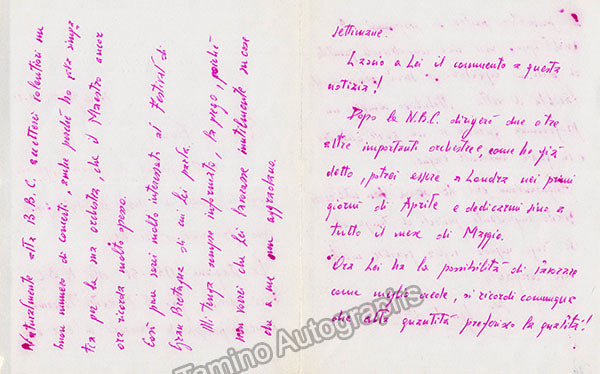 Naturalmente alla B.B.C. accetterei volentieri un
buon numero di concerti, anche perché ho una simpa
tia per la sua orchestra, che il Maestro ancor
ora ricorda molto spesso.
Così pure sarei molto interessato al Festival di
Gran Bretagna di cui Lei parla.
Mi tenga sempre informato, la prego, perché
non vorrei che Lei lavorasse inutilmente su cose
che a me non aggradano.
settimane.
Lascio a Lei il commento a questa
notizia!
Dopo la N.B.C. dirigerò due o tre
altre importanti orchestre e, come ho già
detto, potrei essere a Londra nei primi
giorni di Aprile e dedicarmi sino a
tutto il mese di Maggio.
Ora Lei ha la possibilità di lavorare
come meglio crede, si ricordi comunque
che alla quantità preferisco la qualità!
Tamino Autographs